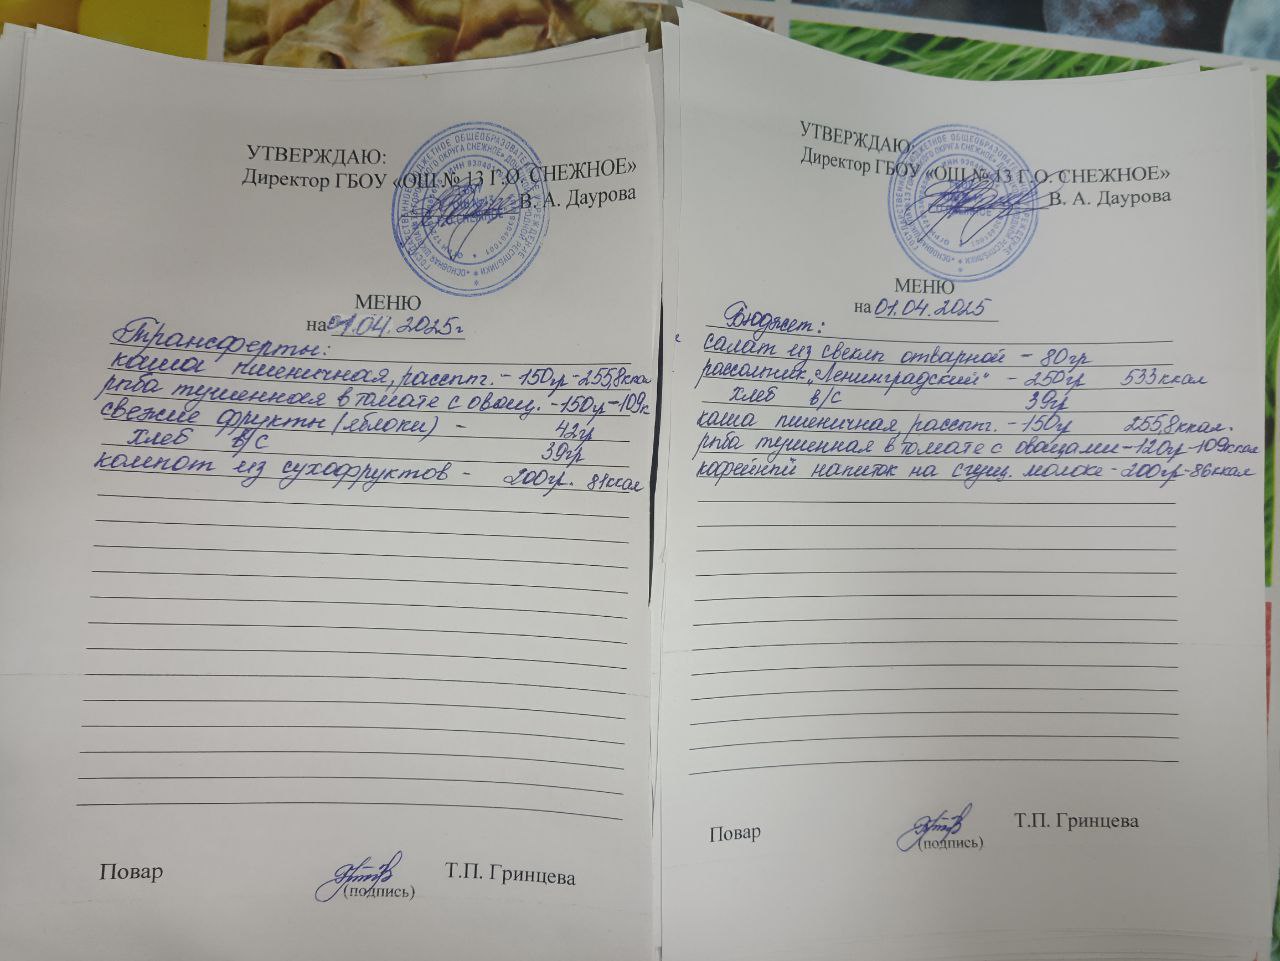 УТВЕРЖДАЮ:
Директор ГБОУ «ОШ № 13 Г.О. СНЕЖНОЕ»
В. А. Даурова
МЕНЮ
на 01.04.2025г
Трансферты:
каша пшеничная, рассып. - 150гр - 255,8ккал
рыба тушенная в томате с овощ. - 150гр - 109к
свежие фрукты (яблоки) - 42гр
хлеб в/с 39гр
компот из сухофруктов - 200гр. 81ккал
Повар Т.П. Гринцева
(подпись)
УТВЕРЖДАЮ:
Директор ГБОУ «ОШ № 13 Г.О. СНЕЖНОЕ»
В. А. Даурова
МЕНЮ
на 01.04.2025
Бюджет:
салат из свеклы отварной - 80гр
рассольник „Ленинградский" - 250гр 533ккал
хлеб в/с 39гр
каша пшеничная, рассып. - 150гр 255,8ккал.
рыба тушенная в томате с овощами - 120гр - 109ккал
кофейный напиток на сгущ. молоке - 200гр - 86ккал
Повар Т.П. Гринцева
(подпись)